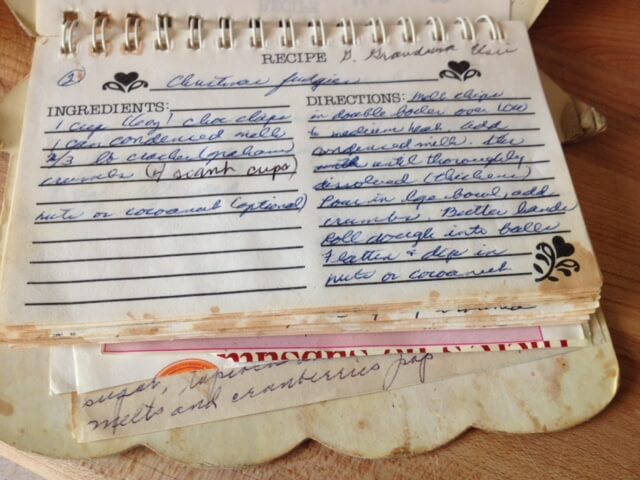 RECIPE G. Grandma
② Christmas fudgies
INGREDIENTS:
1 cup (6oz) choc chips
1 can condensed milk
2/3 lb cracker (graham)
crumbs (4 scant cups)
nuts or cocoanut (optional)
DIRECTIONS: Melt chips
in double boiler over low
to medium heat add
condensed milk. Stir
until thoroughly
dissolved (thickens)
Pour in lge bowl, add
crumbs. Butter hands
Roll dough into balls
Flatten & dip in
nuts or cocoanut.
sugar, tapioca
melts and cranberries pop